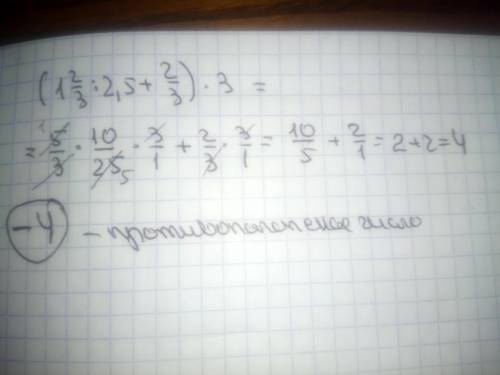 (1 2/3 : 2,5 + 2/3) · 3 =
= 5/3 · 10/25 · 3/1 + 2/3 · 3/1 = 10/5 + 2/1 = 2+2=4
1 5
-4 – противоположное число